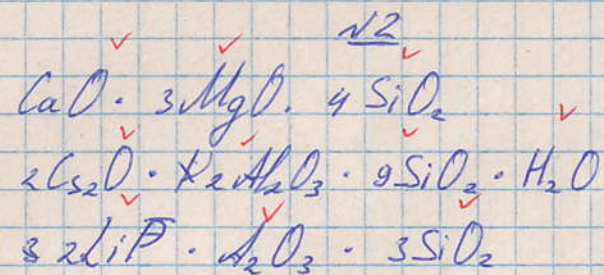 №2
CaO · 3MgO · 4SiO₂
2Cs₂O · 2Al₂O₃ · 9SiO₂ · H₂O
2LiF · A₂O₃ · 3SiO₂